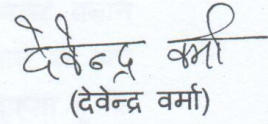 देवेन्द्र वर्मा
(देवेन्द्र वर्मा)